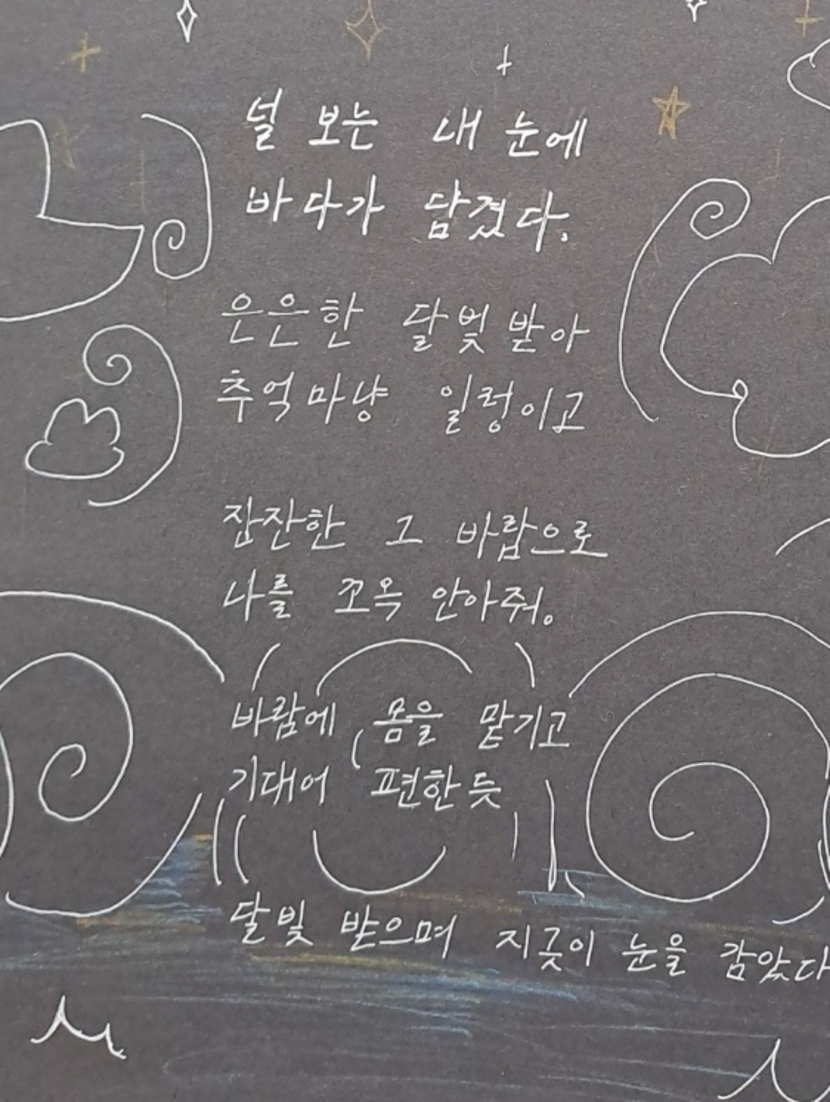 널 보는 내 눈에
바다가 담겼다.
은은한 달빛 받아
추억마냥 일렁이고
잔잔한 그 바람으로
나를 꼬옥 안아줘.
바람에 몸을 맡기고
기대어 편한 듯
달빛 받으며 지긋이 눈을 감았다